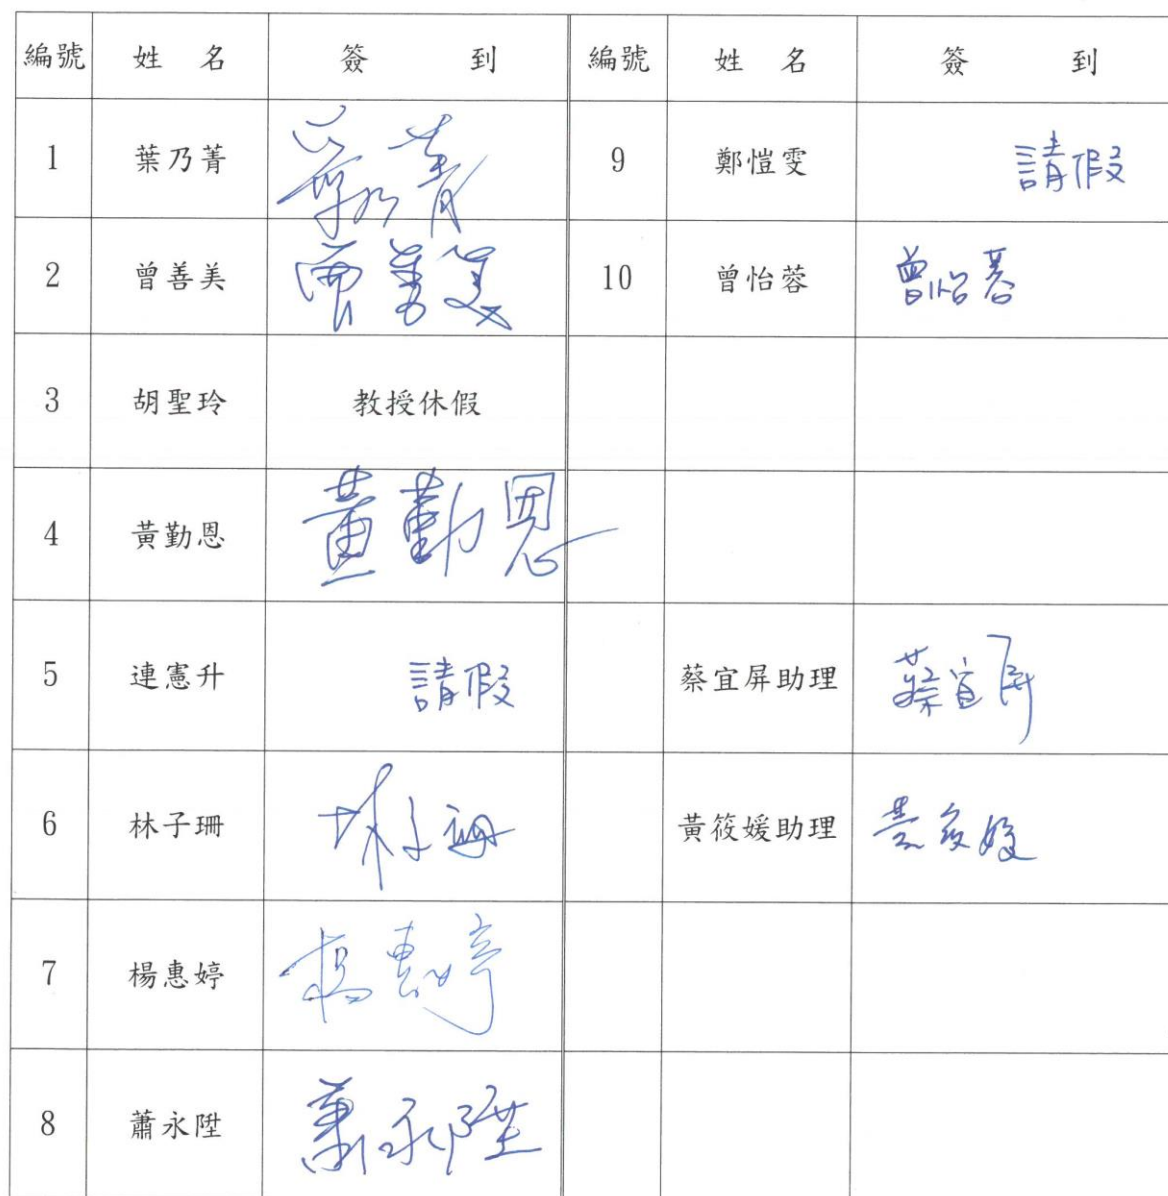 編號 姓 名 簽 到 編號 姓 名 簽 到
1 葉乃菁 葉乃菁 9 鄭愷雯 請假
2 曾善美 曾善美 10 曾怡蓉 曾怡蓉
3 胡聖玲 教授休假
4 黃勤恩 黃勤恩
5 連憲升 請假 蔡宜屏助理 蔡宜屏
6 林子珊 林子珊 黃筱媛助理 黃筱媛
7 楊惠婷 楊惠婷
8 蕭永陞 蕭永陞